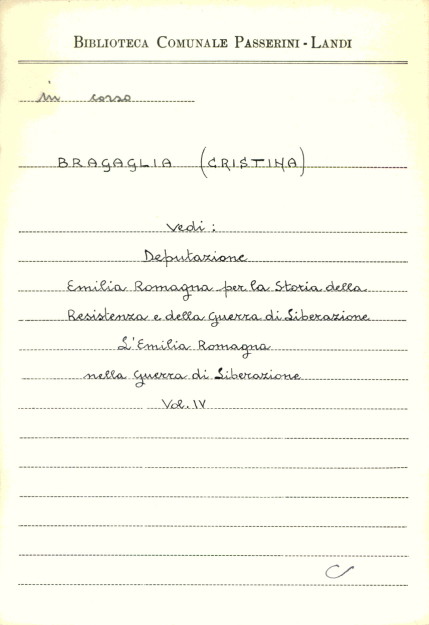 BIBLIOTECA COMUNALE PASSERINI - LANDI
in corso
BRAGAGLIA (CRISTINA)
Vedi :
Deputazione
Emilia Romagna per la Storia della
Resistenza e della Guerra di Liberazione
L'Emilia Romagna
nella Guerra di Liberazione
Vol. IV
C